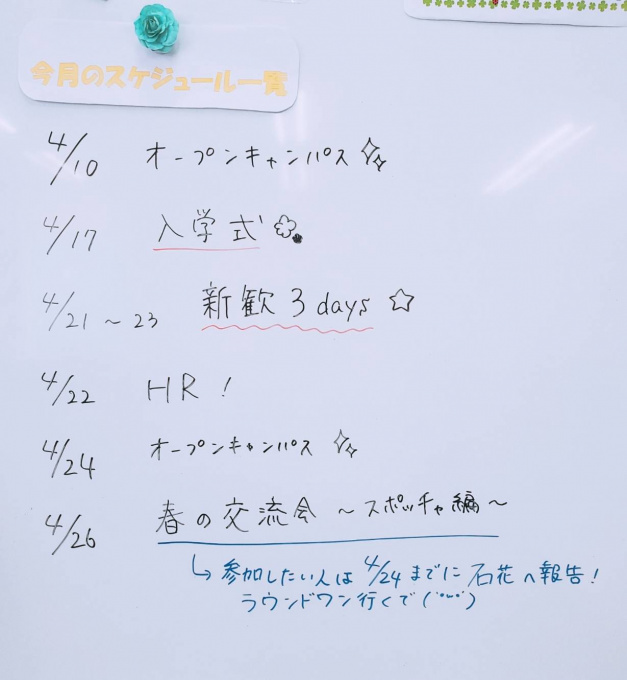 今月のスケジュール一覧
4/10 オープンキャンパス
4/17 入学式
4/21～23 新歓3days☆
4/22 HR!
4/24 オープンキャンパス
4/26 春の交流会～スポッチャ編～
↳参加したい人は4/24までに石花へ報告!
ラウンドワン行くで(°ω°)